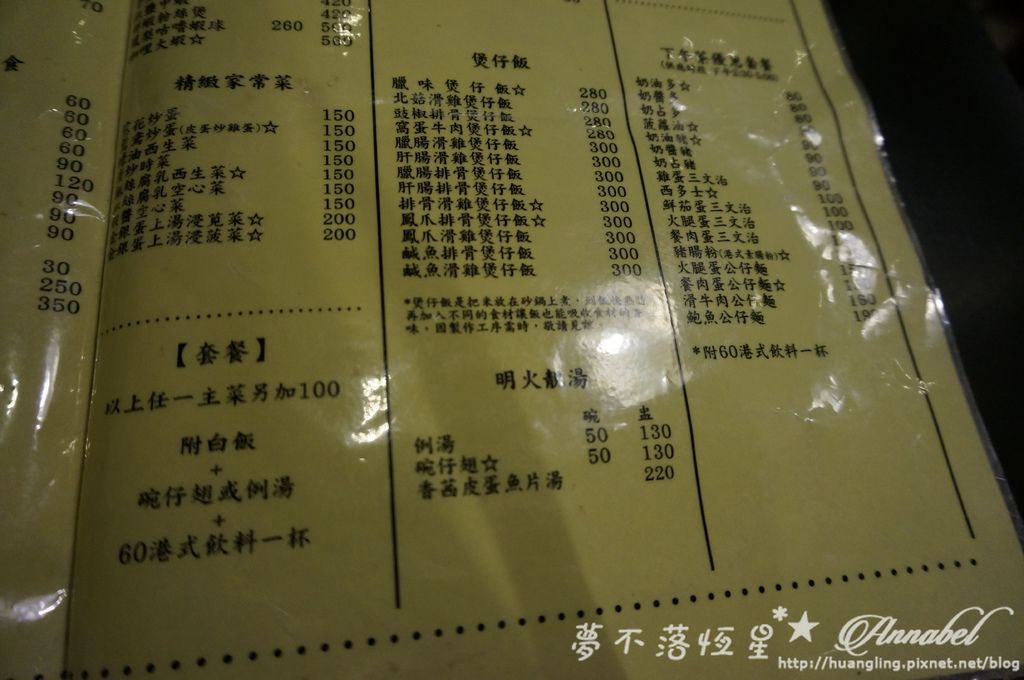 食
70
60
60
60
60
90
120
90
90
90
30
250
350
420
粉絲煲 420
咕嚕蝦球 260 500
大蝦☆ 500
精緻家常菜
花炒蛋 150
炒蛋(皮蛋炒雞蛋)☆ 150
油西生菜 150
炒時菜 150
絲腐乳西生菜☆ 150
絲腐乳空心菜 150
醬空心菜 150
銀蛋上湯浸莧菜☆ 200
銀蛋上湯浸菠菜☆ 200
【套餐】
以上任一主菜另加100
附白飯
+
碗仔翅或例湯
+
60港式飲料一杯
煲仔飯
臘味煲仔飯☆ 280
北菇滑雞煲仔飯 280
豉椒排骨煲仔飯 280
窩蛋牛肉煲仔飯☆ 280
臘腸滑雞煲仔飯 300
肝腸滑雞煲仔飯 300
臘腸排骨煲仔飯 300
肝腸排骨煲仔飯 300
排骨滑雞煲仔飯☆ 300
鳳爪排骨煲仔飯☆ 300
鳳爪滑雞煲仔飯 300
鹹魚排骨煲仔飯 300
鹹魚滑雞煲仔飯 300
*煲仔飯是把米放在砂鍋上煮,到飯後熟
再加入不同的食材讓飯也能吸收食材的
味。因製作工序需時,敬請見諒。
明火靚湯
碗 盅
例湯 50 130
碗仔翅☆ 50 130
香茜皮蛋魚片湯 220
下午茶優惠套餐
奶油多☆ 80
奶醬多 80
奶占多 80
菠蘿油☆ 90
奶油豬☆ 90
奶醬豬 90
奶占豬 90
雞蛋三文治 90
西多士☆ 100
鮮茄蛋三文治 100
火腿蛋三文治 100
餐肉蛋三文治
豬腸粉(港式素腸粉)☆
火腿蛋公仔麵
餐肉蛋公仔麵☆
滑牛肉公仔麵 150
鮑魚公仔麵
*附60港式飲料一杯
夢不落恆星*★ Annabel
http://huangling.pixnet.net/blog